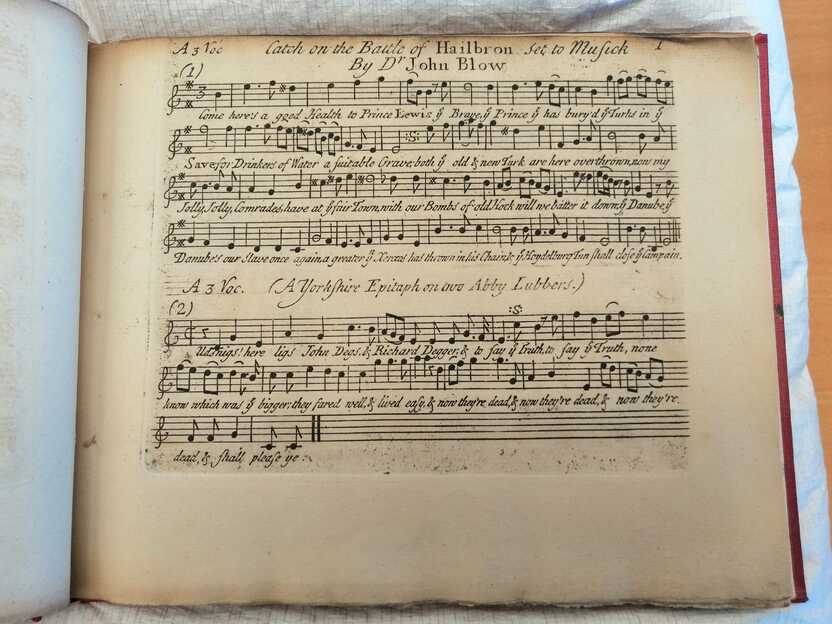 A 3 Voc Catch on the Battle of Hailbron Set to Musick 1
By Dr John Blow
(1)
Come here's a good Health to Prince Lewis ye Brave, ye Prince yt has bury'd ye Turks in ye
Save, for Drinkers of Water a suitable Grave, both ye old & new Turk are here overthrown, now my
Jolly, Jolly, Comrades, have at ye fair Town, with our Bombs of old Hock will we batter it down, ye Danube ye
Danube's our Slave once again, a greater yn Xerxes has thrown in his Chain, & ye Heydelburg Tun shall close ye Campain.
A 3 Voc. (A Yorkshire Epitaph on two Abby Lubbers.)
(2)
Udsnigs! here ligs John Degs, & Richard Degger, & to say ye Truth, to say ye Truth, none
know which was ye bigger; they fared well, & lived easy, & now they're dead, & now they're dead, & now they're
dead, & shall please ye :